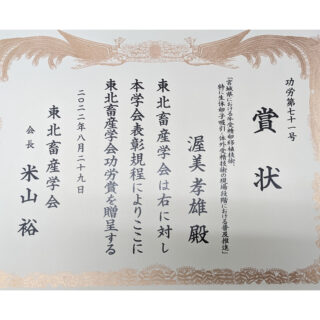 功労第七十一号
賞状
「宮城県における牛受精卵移植技術、
特に生体卵子吸引・体外受精技術の現場段階における普及推進」
渥美孝雄殿
東北畜産学会は右に対し
本学会表彰規程によりここに
東北畜産学会功労賞を贈呈する
二〇二二年八月二十九日
東北畜産学会
会長 米山裕